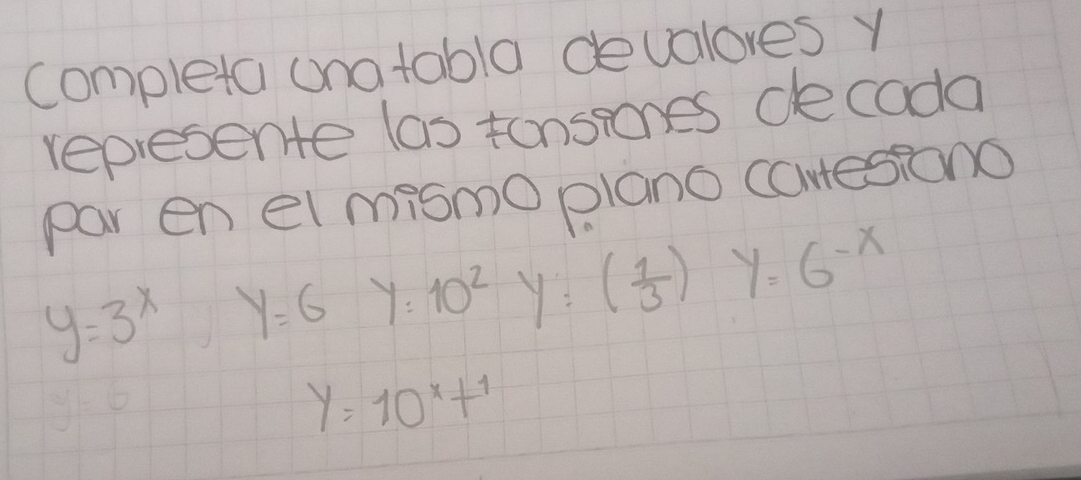 completa una tabla de valores y
represente las fonsiones de cada
par en el mismo plano cartesiano
y=3^x, y=6 y=10² y=(1/3) y=6^-x
y=10^x+1